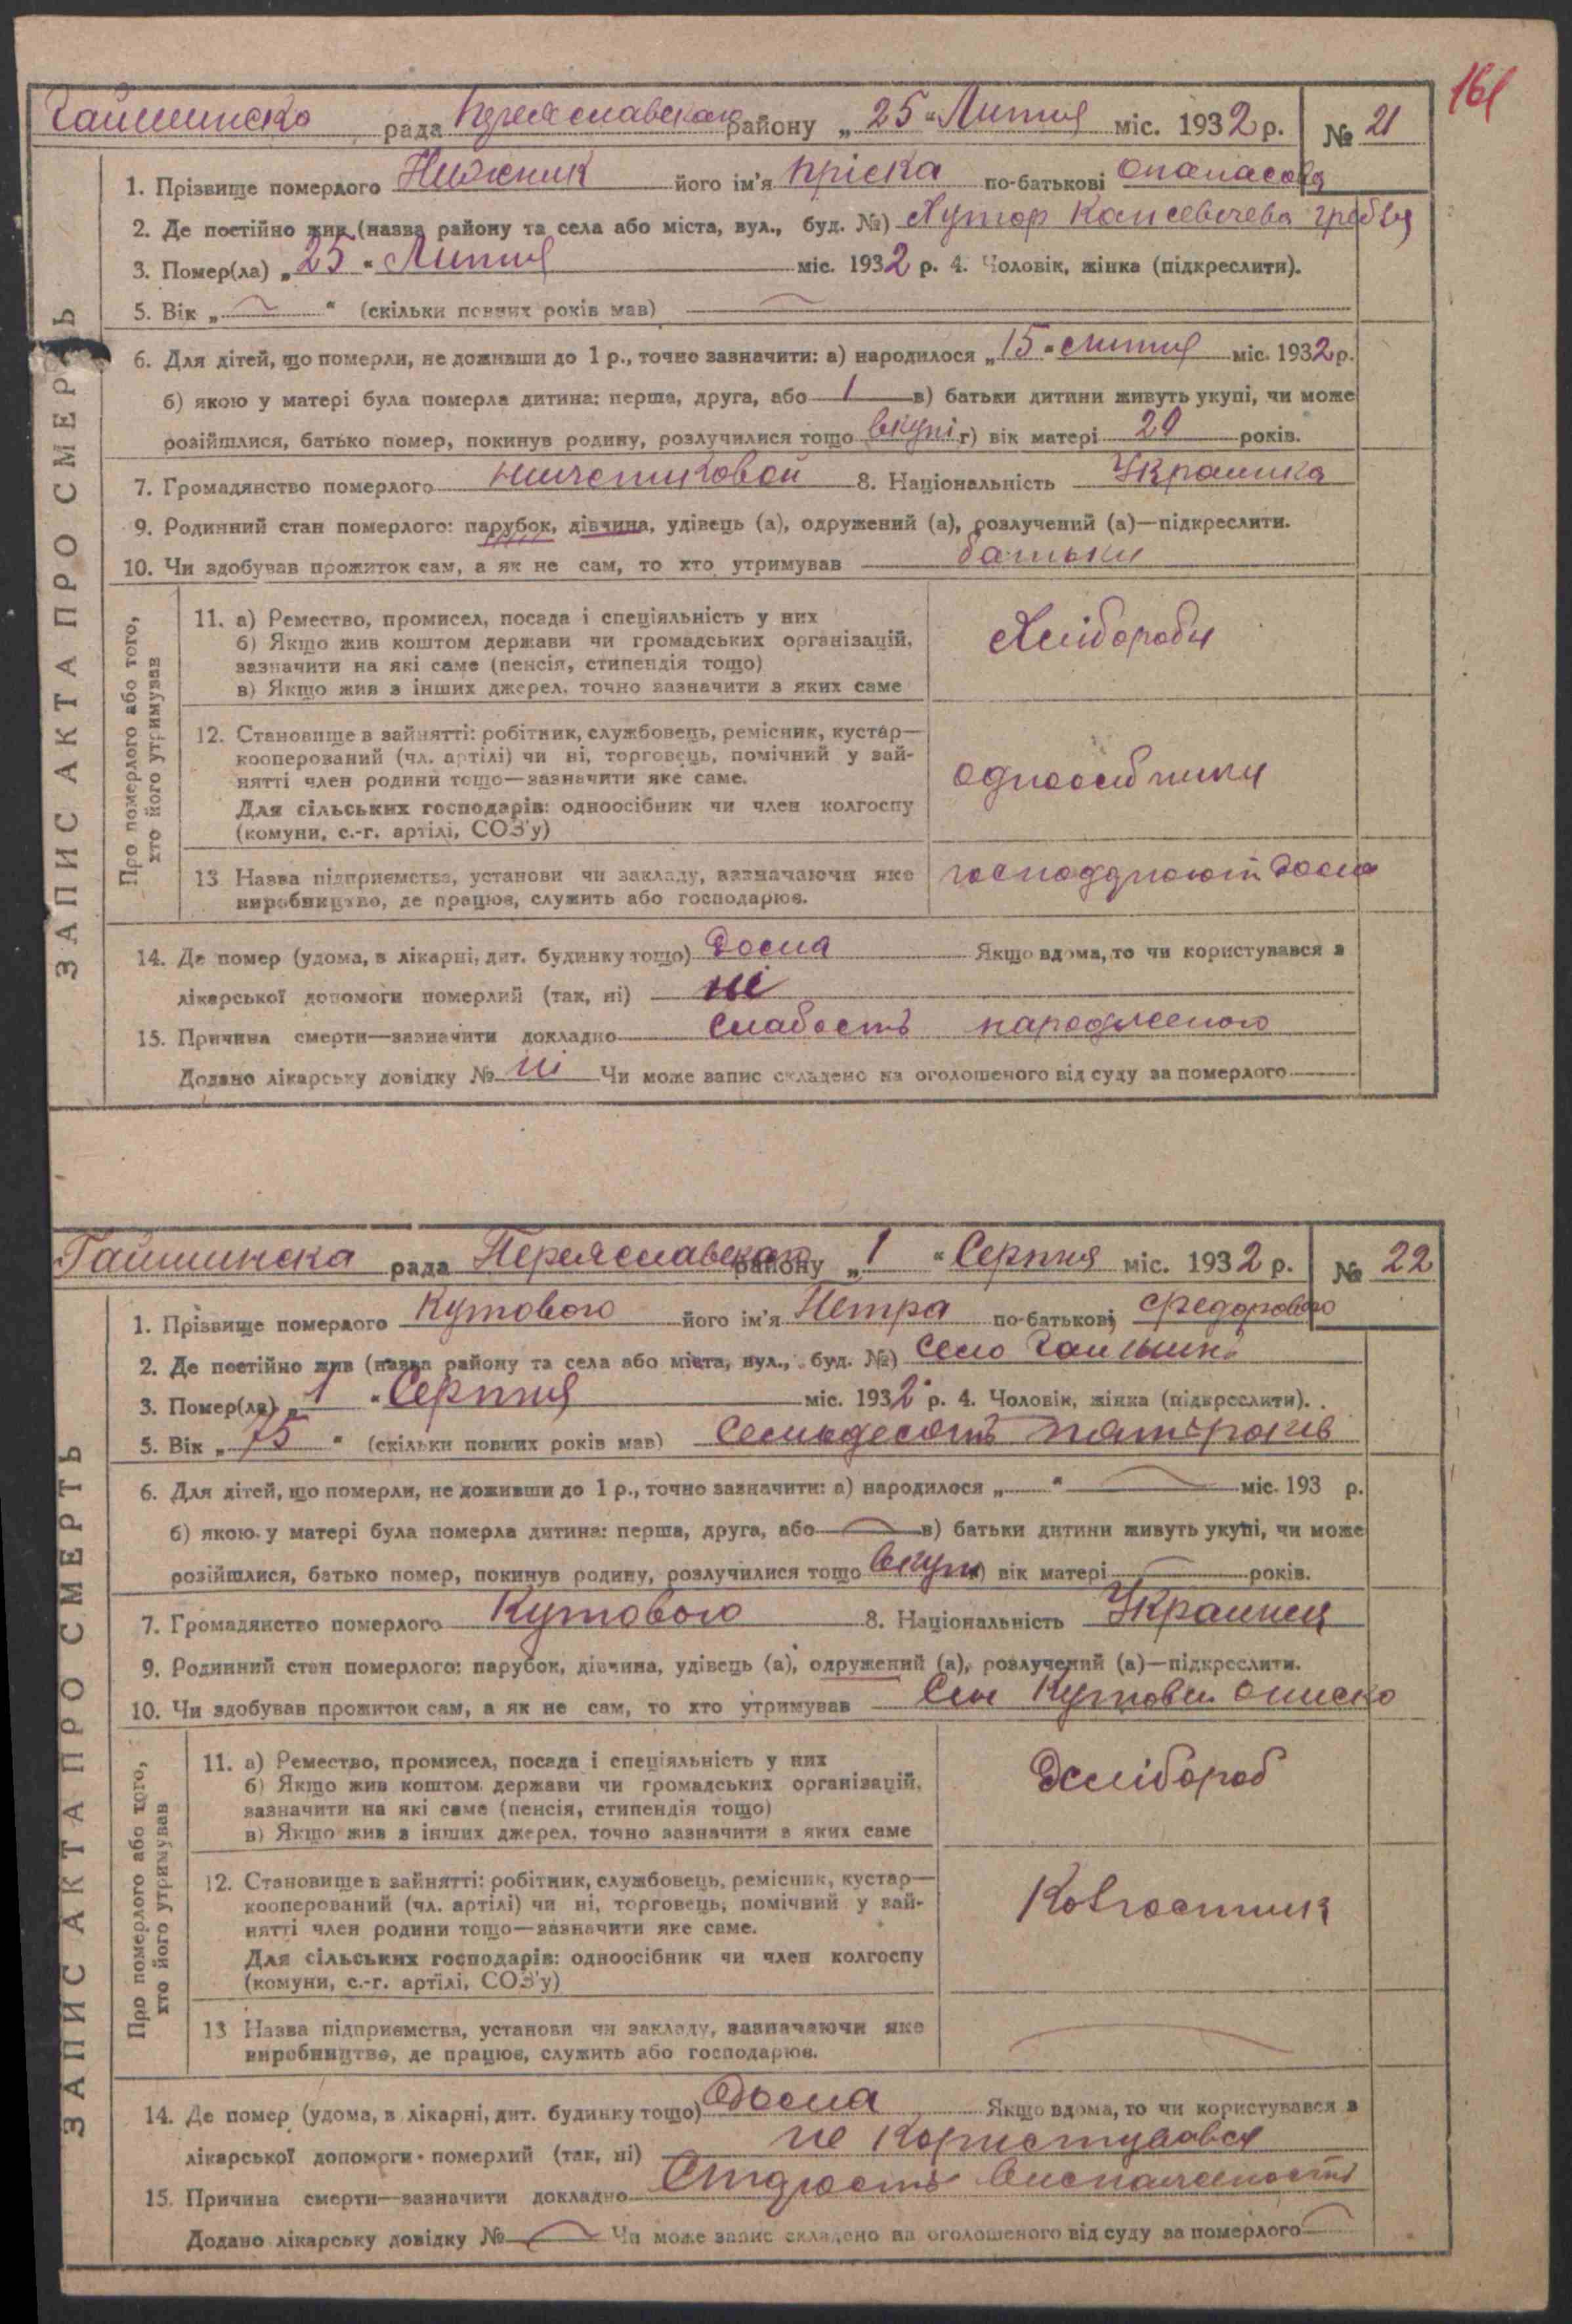 161
Гайшинсько рада Переяславського району „25“ Липня міс. 1932 р. № 21
1. Прізвище померлого Нижник його ім'я Пріска по-батькові Опанасова
2. Де постійно жив (назва району та села або міста, вул., буд. №) Хутор гребля
3. Помер(ла) „25“ Липня міс. 1932 р. 4. Чоловік, жінка (підкреслити).
5. Вік „ “ (скільки повних років мав)
6. Для дітей, що померли, не доживши до 1 р., точно зазначити: а) народилося „15“ липня міс. 1932 р.
б) якою у матері була померла дитина: перша, друга, або 1 в) батьки дитини живуть укупі, чи може
розійшлися, батько помер, покинув родину, розлучилися тощо вкупі г) вік матері 29 років.
7. Громадянство померлого 8. Національність Украинка
9. Родинний стан померлого: парубок, дівчина, удівець (а), одружений (а), розлучений (а)—підкреслити.
10. Чи здобував прожиток сам, а як не сам, то хто утримував батьки
ЗАПИС АКТА ПРО СМЕРТЬ
Про померлого або того, хто його утримував
11. а) Ремество, промисел, посада і спеціяльність у них
б) Якщо жив коштом держави чи громадських організацій,
зазначити на які саме (пенсія, стипендія тощо)
в) Якщо жив з інших джерел, точно зазначити з яких саме
Хлібороби
12. Становище в зайнятті: робітник, службовець, ремісник, кустар—
кооперований (чл. артілі) чи ні, торговець, помічний у зай-
нятті член родини тощо—зазначити яке саме.
Для сільських господарів: одноосібник чи член колгоспу
(комуни, с.-г. артілі, СОЗ'у)
одноосібники
13 Назва підприємства, установи чи закладу, вазначаючи яке
виробництво, де працює, служить або господарює.
дома
14. Де помер (удома, в лікарні, дит. будинку тощо) Дома Якщо вдома, то чи користувався з
лікарської допомоги померлий (так, ні) ні
15. Причина смерти—зазначити докладно слабость народженого
Додано лікарську довідку № ні Чи може запис складено на оголошеного від суду за померлого
Гайшинська рада Переяславського району „1“ Серпня міс. 1932 р. № 22
1. Прізвище померлого Кутового його ім'я Петра по-батькові Федорового
2. Де постійно жив (назва району та села або міста, вул., буд. №) Село Гайшин
3. Помер(ла) „1“ Серпня міс. 1932 р. 4. Чоловік, жінка (підкреслити).
5. Вік „75“ (скільки повних років мав) Семьдесять пять років
6. Для дітей, що померли, не доживши до 1 р., точно зазначити: а) народилося „ “ міс. 193 р.
б) якою у матері була померла дитина: перша, друга, або в) батьки дитини живуть укупі, чи може
розійшлися, батько помер, покинув родину, розлучилися тощо вкупи г) вік матері років.
7. Громадянство померлого Кутового 8. Національність Украинец
9. Родинний стан померлого: парубок, дівчина, удівець (а), одружений (а), розлучений (а)—підкреслити.
10. Чи здобував прожиток сам, а як не сам, то хто утримував Син Кутовий
ЗАПИС АКТА ПРО СМЕРТЬ
Про померлого або того, хто його утримував
11. а) Ремество, промисел, посада і спеціяльність у них
б) Якщо жив коштом держави чи громадських організацій,
зазначити на які саме (пенсія, стипендія тощо)
в) Якщо жив з інших джерел, точно зазначити з яких саме
Хлібороб
12. Становище в зайнятті: робітник, службовець, ремісник, кустар—
кооперований (чл. артілі) чи ні, торговець, помічний у зай-
нятті член родини тощо—зазначити яке саме.
Для сільських господарів: одноосібник чи член колгоспу
(комуни, с.-г. артілі, СОЗ'у)
Ковгоспник
13 Назва підприємства, установи чи закладу, вазначаючи яке
виробництво, де працює, служить або господарює.
14. Де помер (удома, в лікарні, дит. будинку тощо) Дома Якщо вдома, то чи користувався з
лікарської допомоги померлий (так, ні) не користувався
15. Причина смерти—зазначити докладно
Додано лікарську довідку № Чи може запис складено на оголошеного від суду за померлого